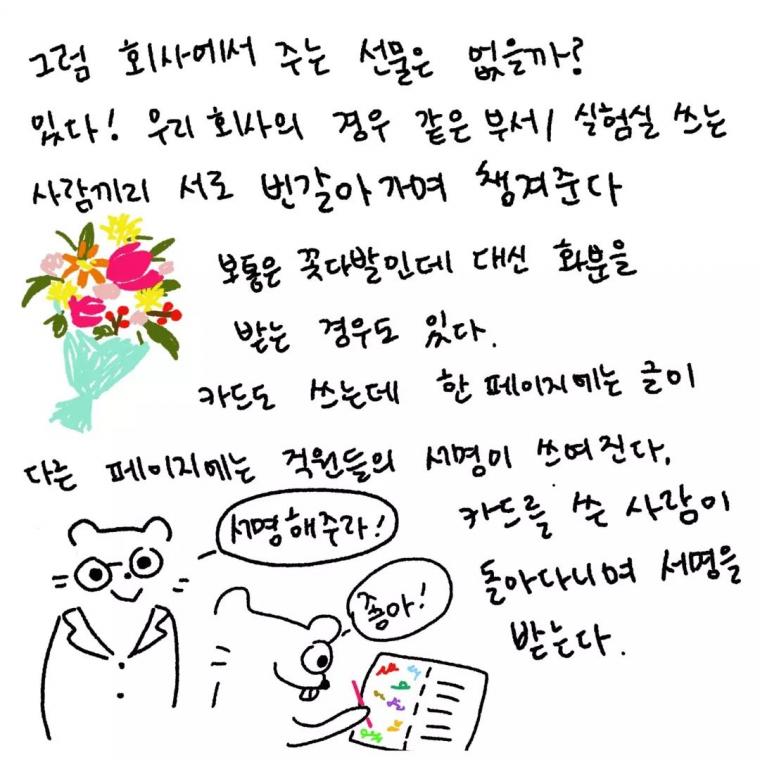 그럼 회사에서 주는 선물은 없을까?
있다! 우리 회사의 경우 같은 부서/실험실 쓰는
사람끼리 서로 번갈아가며 챙겨준다
보통은 꽃다발인데 대신 화분을
받는 경우도 있다.
카드도 쓰는데 한 페이지에는 글이
다른 페이지에는 직원들의 서명이 쓰여진다.
카드를 쓴 사람이
돌아다니며 서명을
받는다.
서명해주라!
좋아!